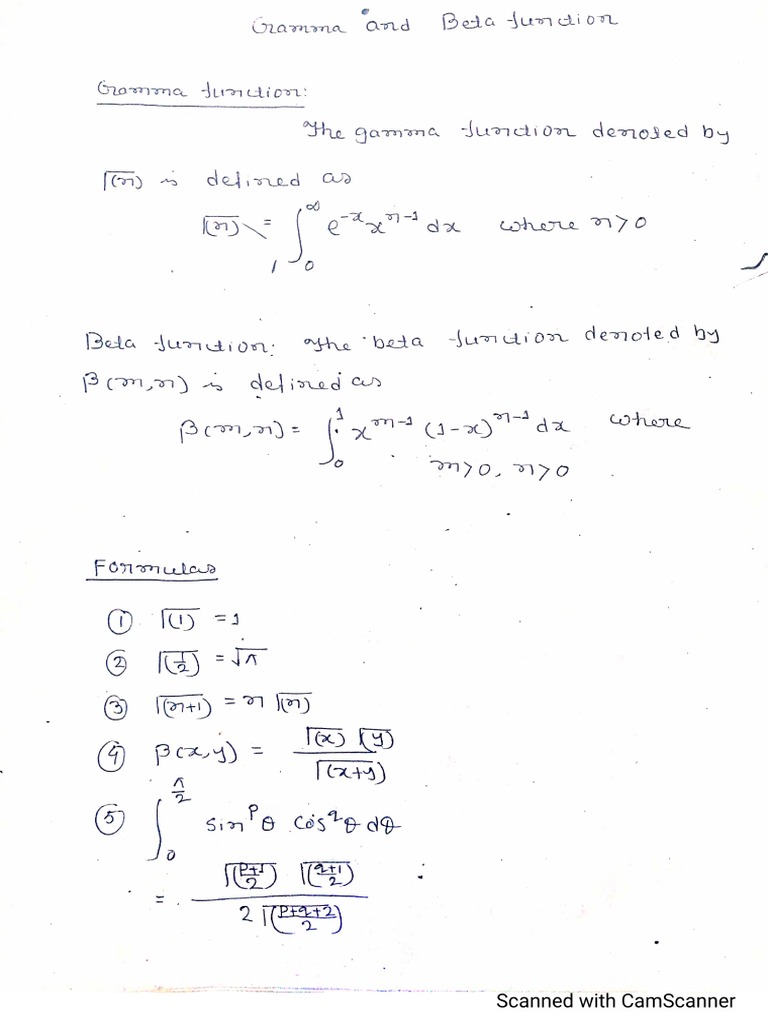 Gramma and Beta function
Gramma function:
The gamma function denoted by
Γ(n) is defined as
Γ(n) = ∫₀^∞ e^-x x^n-1 dx where n>0
Beta function: The beta function denoted by
β(m,n) is defined as
β(m,n) = ∫₀^1 x^m-1 (1-x)^n-1 dx where
m>0, n>0
Formulas
① Γ(1) = 1
② Γ(1/2) = √π
③ Γ(n+1) = n Γ(n)
④ β(x,y) = Γ(x) Γ(y) / Γ(x+y)
⑤ ∫₀^π/2 sin^p θ cos^q θ dθ
= Γ(p+1/2) Γ(q+1/2) / 2 Γ(p+q+2/2)
Scanned with CamScanner